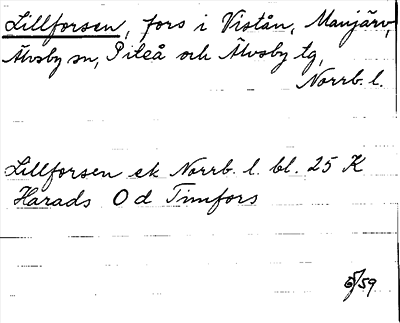 Lillforsen, fors i Vistån, Manjärv,
Älvsby sn, Piteå och Älvsby tg,
Norrb. l.
Lillforsen ek Norrb. l. bl. 25 K
Harads O d Timfors
/59